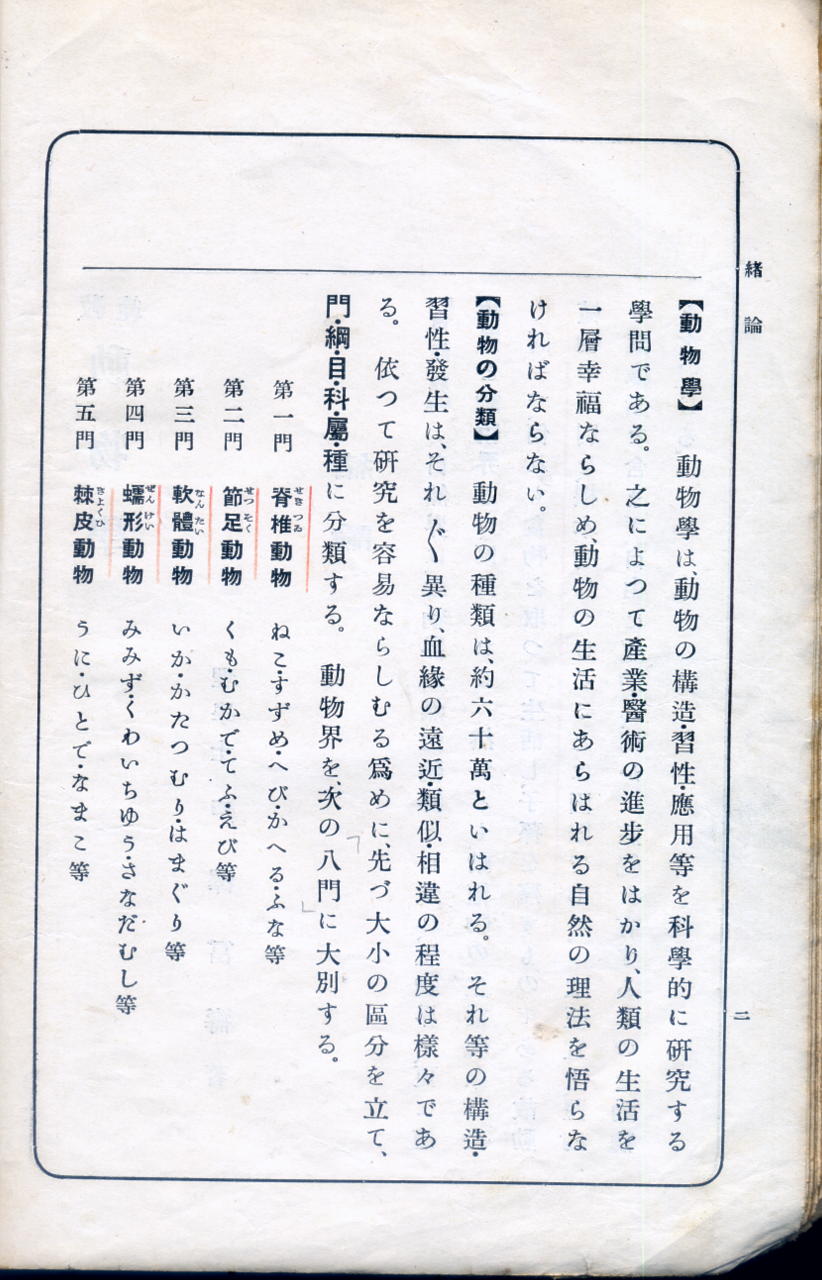 緖論
二
【動物學】　動物學は、動物の構造・習性・應用等を科學的に硏究する
學問である。之によつて產業・醫術の進步をはかり、人類の生活を
一層幸福ならしめ、動物の生活にあらはれる自然の理法を悟らな
ければならない。
【動物の分類】　動物の種類は、約六十萬といはれる。　それ等の構造・
習性・發生は、それ〴〵異り、血緣の遠近・類似・相違の程度は樣々であ
る。　依つて硏究を容易ならしむる爲めに、先づ大小の區分を立て、
門・綱・目・科・屬・種に分類する。　動物界を、次の八門に大別する。
第一門　脊椎動物　ねこ・すずめ・へび・かへる・ふな等
せきつゐ
第二門　節足動物　くも・むかで・てふ・えび等
せつそく
第三門　軟體動物　いか・かたつむり・はまぐり等
なんたい
第四門　蠕形動物　みみず・くわいちゆう・さなだむし等
ぜんけい
第五門　棘皮動物　うに・ひとで・なまこ等
きよくひ